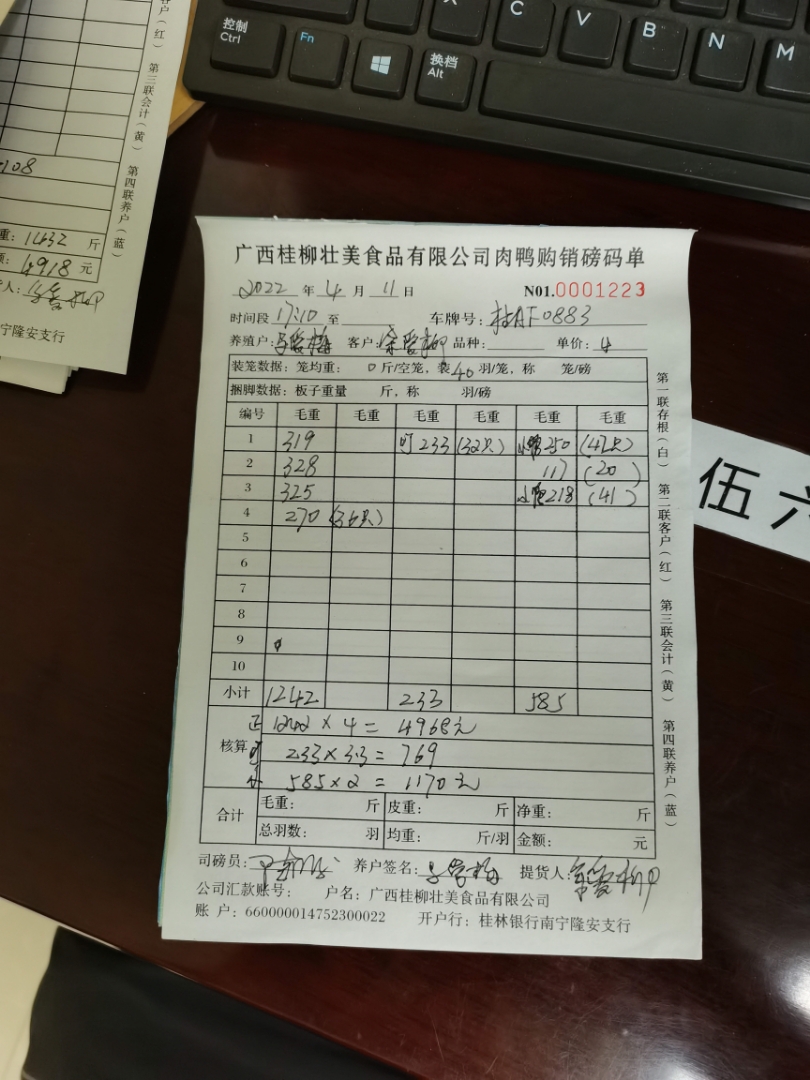 控制
Ctrl
Fn
换档
Alt
X
C
V
B
N
M
户(红)
第三联会计(黄)
第四联养户(蓝)
108
重: 1632 斤
额: 4918 元
货人:
宁隆安支行
广西桂柳壮美食品有限公司肉鸭购销磅码单
2022 年 4 月 11 日 N01.0001223
时间段 17:10 至 车牌号: 桂AF0883
养殖户: 客户: 品种: 单价: 4
装笼数据: 笼均重: 0 斤/空笼, 装40 羽/笼, 称 笼/磅
捆脚数据: 板子重量 斤, 称 羽/磅
编号 毛重 毛重 毛重 毛重 毛重 毛重
1 319 可 233 (32只) 250 (47只)
2 328 117 (20)
3 325 218 (41)
4 270 (36只)
5
6
7
8
9
10
小计 1242 233 585
核算
正 1242 × 4 = 4968元
可 233 × 3.3 = 769
小 585 × 2 = 1170元
合计
毛重: 斤 皮重: 斤 净重: 斤
总羽数: 羽 均重: 斤/羽 金额: 元
司磅员: 养户签名: 提货人:
公司汇款账号: 户名: 广西桂柳壮美食品有限公司
账 户: 660000014752300022 开户行: 桂林银行南宁隆安支行
第一联存根(白)
第二联客户(红)
第三联会计(黄)
第四联养户(蓝)
伍六